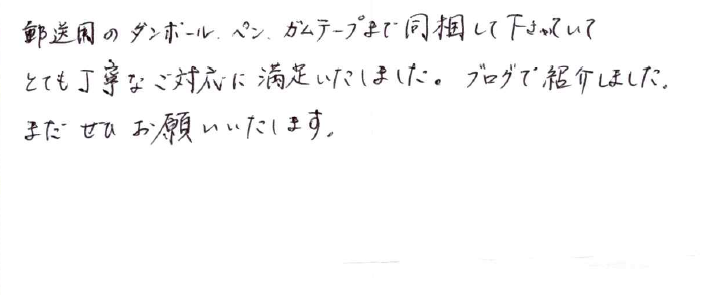 郵送用のダンボール、ペン、ガムテープまで同梱して下さっていて
とても丁寧なご対応に満足いたしました。ブログで紹介しました。
まだぜひお願いいたします。